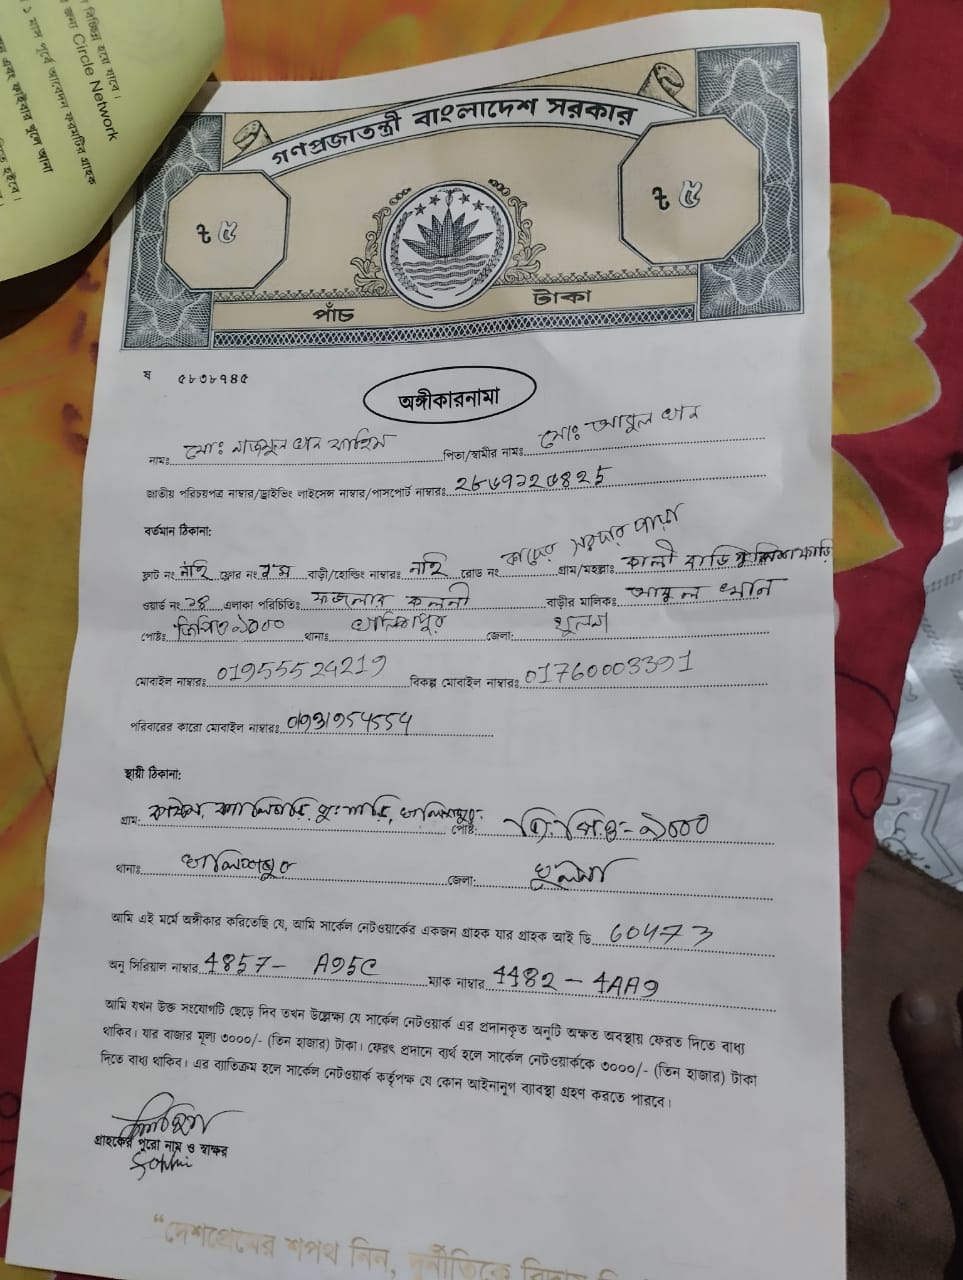 বিচ্ছিন্ন হয়ে যাবে।
জন্য Circle Network
১ মাস পূর্বে আবেদন ফরমটির গ্রাহক
এবং ফাইবার খুলে আনা
হইবে।
গণপ্রজাতন্ত্রী বাংলাদেশ সরকার
৳ ৫ ৳ ৫
পাঁচ টাকা
ষ ৫৮৩৮৭৪৫
অঙ্গীকারনামা
নামঃ মোঃ নাজমুল খান ফাহিম পিতা/স্বামীর নামঃ মোঃ আবুল খান
জাতীয় পরিচয়পত্র নাম্বার/ড্রাইভিং লাইসেন্স নাম্বার/পাসপোর্ট নাম্বারঃ
বর্তমান ঠিকানা:
ফ্লাট নং নাই ফ্লোর নং বাড়ী/হোল্ডিং নাম্বারঃ নাই রোড নং কাদের সরদার পাড়া গ্রাম/মহল্লাঃ কালী বাড়ি
ওয়ার্ড নং ১৪ এলাকা পরিচিতিঃ ফজলার কলনী বাড়ীর মালিকঃ আবুল খান
পোষ্টঃ জিপিও ৯০০০ থানাঃ খালিশপুর জেলা: খুলনা
মোবাইল নাম্বারঃ 01955524219 বিকল্প মোবাইল নাম্বারঃ 01760003391
পরিবারের কারো মোবাইল নাম্বারঃ
স্থায়ী ঠিকানা:
গ্রাম: খালিশপুর পোষ্ট: জি.পি.ও-৯০০০
থানাঃ খালিশপুর জেলা: খুলনা
আমি এই মর্মে অঙ্গীকার করিতেছি যে, আমি সার্কেল নেটওয়ার্কের একজন গ্রাহক যার গ্রাহক আই ডি 60473
অনু সিরিয়াল নাম্বার 4857- A95C ম্যাক নাম্বার 4482 - 4AA9
আমি যখন উক্ত সংযোগটি ছেড়ে দিব তখন উল্লেক্ষ্য যে সার্কেল নেটওয়ার্ক এর প্রদানকৃত অনুটি অক্ষত অবস্থায় ফেরত দিতে বাধ্য
থাকিব। যার বাজার মূল্য ৩০০০/- (তিন হাজার) টাকা। ফেরৎ প্রদানে ব্যর্থ হলে সার্কেল নেটওয়ার্ককে ৩০০০/- (তিন হাজার) টাকা
দিতে বাধ্য থাকিব। এর ব্যতিক্রম হলে সার্কেল নেটওয়ার্ক কর্তৃপক্ষ যে কোন আইনানুগ ব্যাবস্থা গ্রহণ করতে পারবে।
গ্রাহকের পুরো নাম ও স্বাক্ষর
“দেশপ্রেমের শপথ নিন, দুর্নীতিকে বিদায়